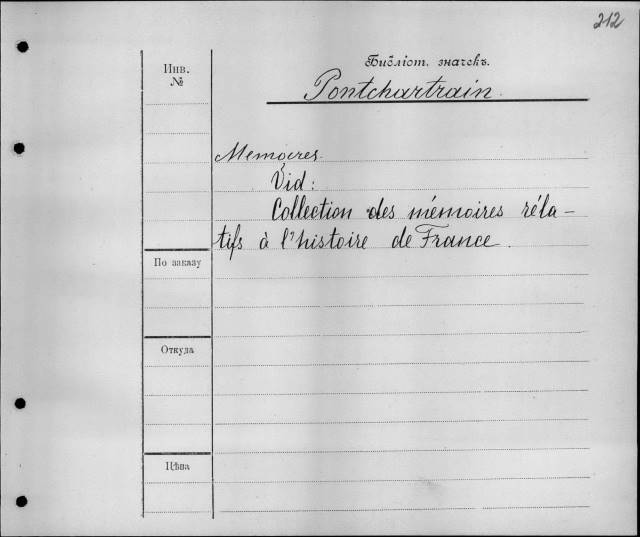 212
Инв.
№
Библіот. значекъ.
Pontchartrain.
Memoires.
Vid:
Collection des mémoires réla-
tifs à l'histoire de France.
По заказу
Откуда
Цѣна